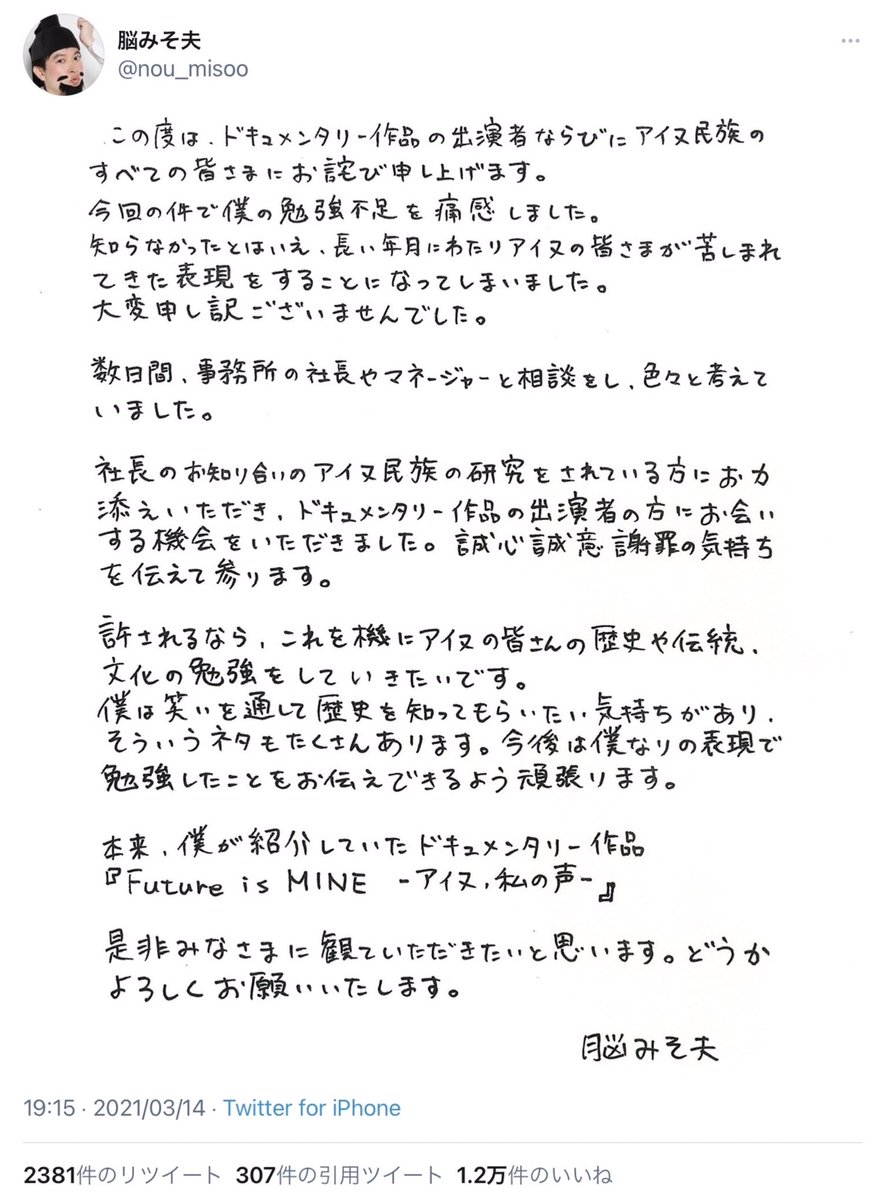 脳みそ夫
@nou_misoo
この度は、ドキュメンタリー作品の出演者ならびにアイヌ民族の
すべての皆さまにお詫び申し上げます。
今回の件で僕の勉強不足を痛感しました。
知らなかったとはいえ、長い年月にわたりアイヌの皆さまが苦しまれ
てきた表現をすることになってしまいました。
大変申し訳ございませんでした。
数日間、事務所の社長やマネージャーと相談をし、色々と考えて
いました。
社長のお知り合いのアイヌ民族の研究をされている方にお力
添えいただき、ドキュメンタリー作品の出演者の方にお会い
する機会をいただきました。誠心誠意謝罪の気持ち
を伝えて参ります。
許されるなら、これを機にアイヌの皆さんの歴史や伝統、
文化の勉強をしていきたいです。
僕は笑いを通して歴史を知ってもらいたい気持ちがあり、
そういうネタもたくさんあります。今後は僕なりの表現で
勉強したことをお伝えできるよう頑張ります。
本来、僕が紹介していたドキュメンタリー作品
『Future is MINE -アイヌ,私の声-』
是非みなさまに観ていただきたいと思います。どうか
よろしくお願いいたします。
脳みそ夫
19:15 · 2021/03/14 · Twitter for iPhone
2381件のリツイート 307件の引用ツイート 1.2万件のいいね